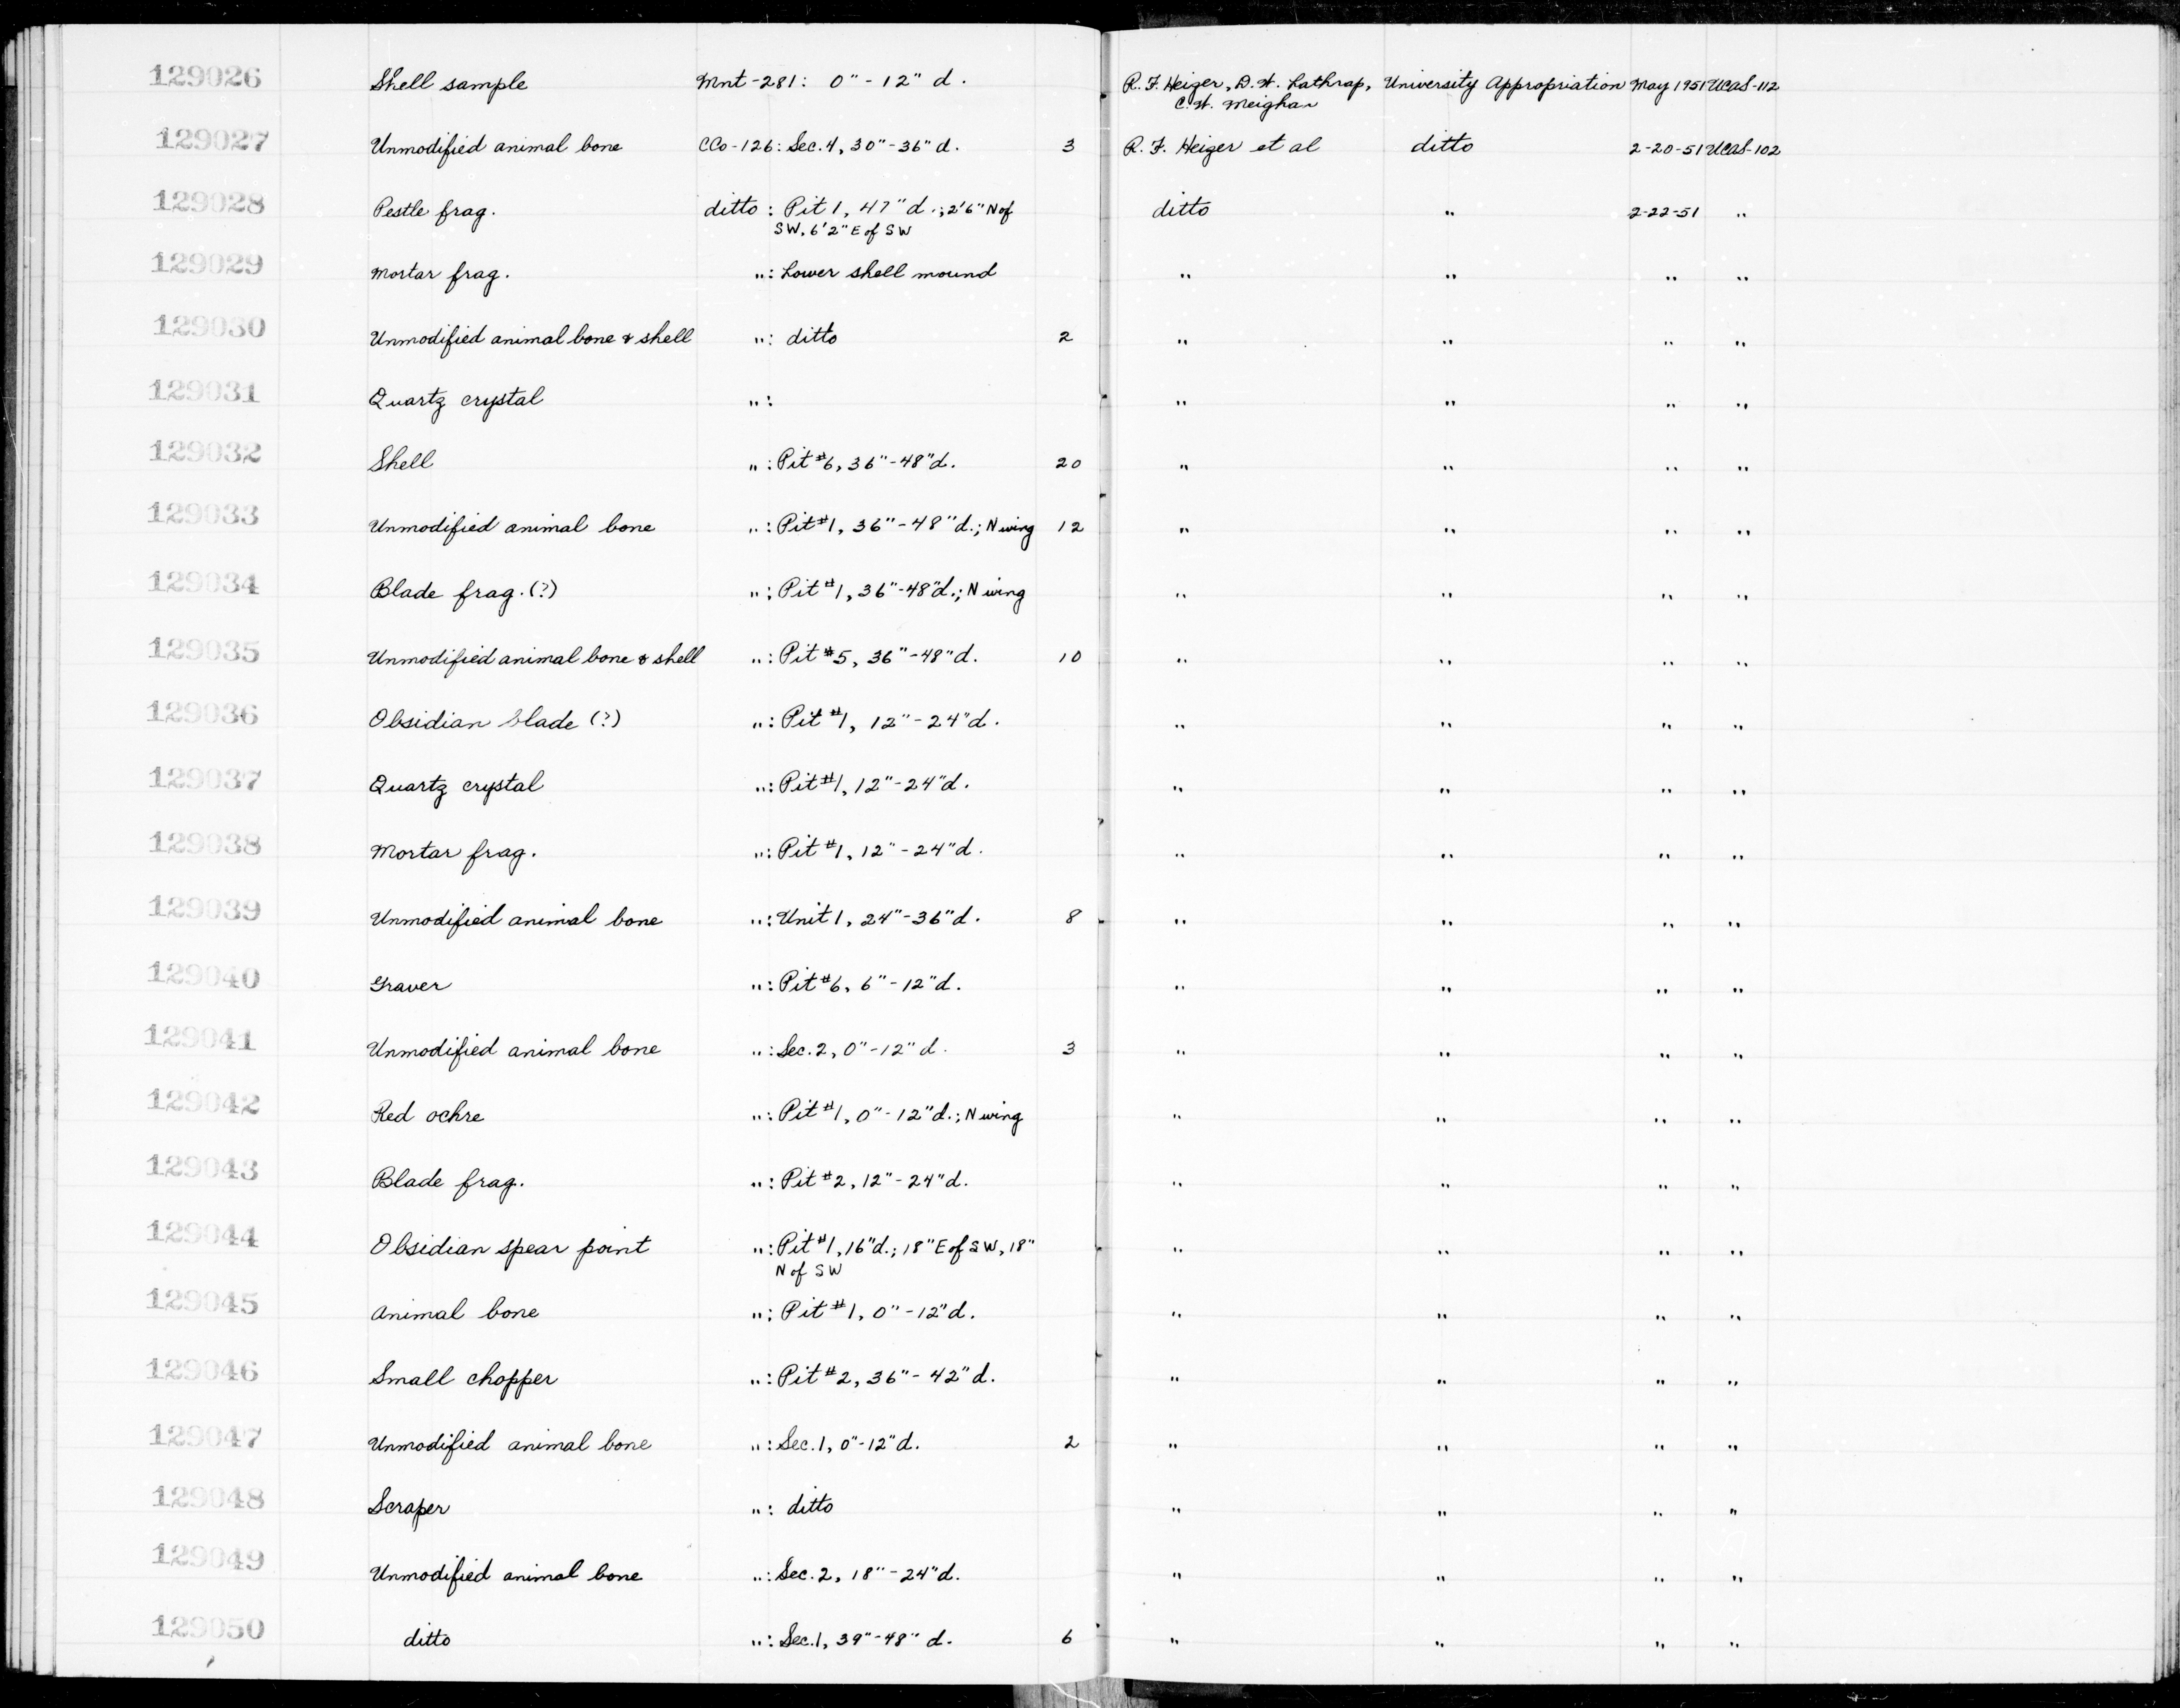 129026 Shell sample Mnt-281: 0"-12" d. R. F. Heizer, D. W. Lathrap, University Appropriation May 1951 UCAS-112
C. W. Meighan
129027 Unmodified animal bone CCo-126: Sec. 4, 30"-36" d. 3 R. F. Heizer et al ditto 2-20-51 UCAS-102
129028 Pestle frag. ditto : Pit 1, 47" d.; 2'6" N of ditto " 2-22-51 "
SW, 6'2" E of SW
129029 Mortar frag. ": Lower shell mound " " " "
129030 Unmodified animal bone & shell ": ditto 2 " " " "
129031 Quartz crystal ": " " " "
129032 Shell ": Pit #6, 36"-48" d. 20 " " " "
129033 Unmodified animal bone ": Pit #1, 36"-48" d.; N wing 12 " " " "
129034 Blade frag. (?) ": Pit #1, 36"-48" d.; N wing " " " "
129035 Unmodified animal bone & shell ": Pit #5, 36"-48" d. 10 " " " "
129036 Obsidian blade (?) ": Pit #1, 12"-24" d. " " " "
129037 Quartz crystal ": Pit #1, 12"-24" d. " " " "
129038 Mortar frag. ": Pit #1, 12"-24" d. " " " "
129039 Unmodified animal bone ": Unit 1, 24"-36" d. 8 " " " "
129040 Graver ": Pit #6, 6"-12" d. " " " "
129041 Unmodified animal bone ": Sec. 2, 0"-12" d. 3 " " " "
129042 Red ochre ": Pit #1, 0"-12" d.; N wing " " " "
129043 Blade frag. ": Pit #2, 12"-24" d. " " " "
129044 Obsidian spear point ": Pit #1, 16" d.; 18" E of SW, 18" " " " "
N of SW
129045 Animal bone ": Pit #1, 0"-12" d. " " " "
129046 Small chopper ": Pit #2, 36"-42" d. " " " "
129047 Unmodified animal bone ": Sec. 1, 0"-12" d. 2 " " " "
129048 Scraper ": ditto " " " "
129049 Unmodified animal bone ": Sec. 2, 18"-24" d. " " " "
129050 ditto ": Sec. 1, 39"-48" d. 6 " " " "